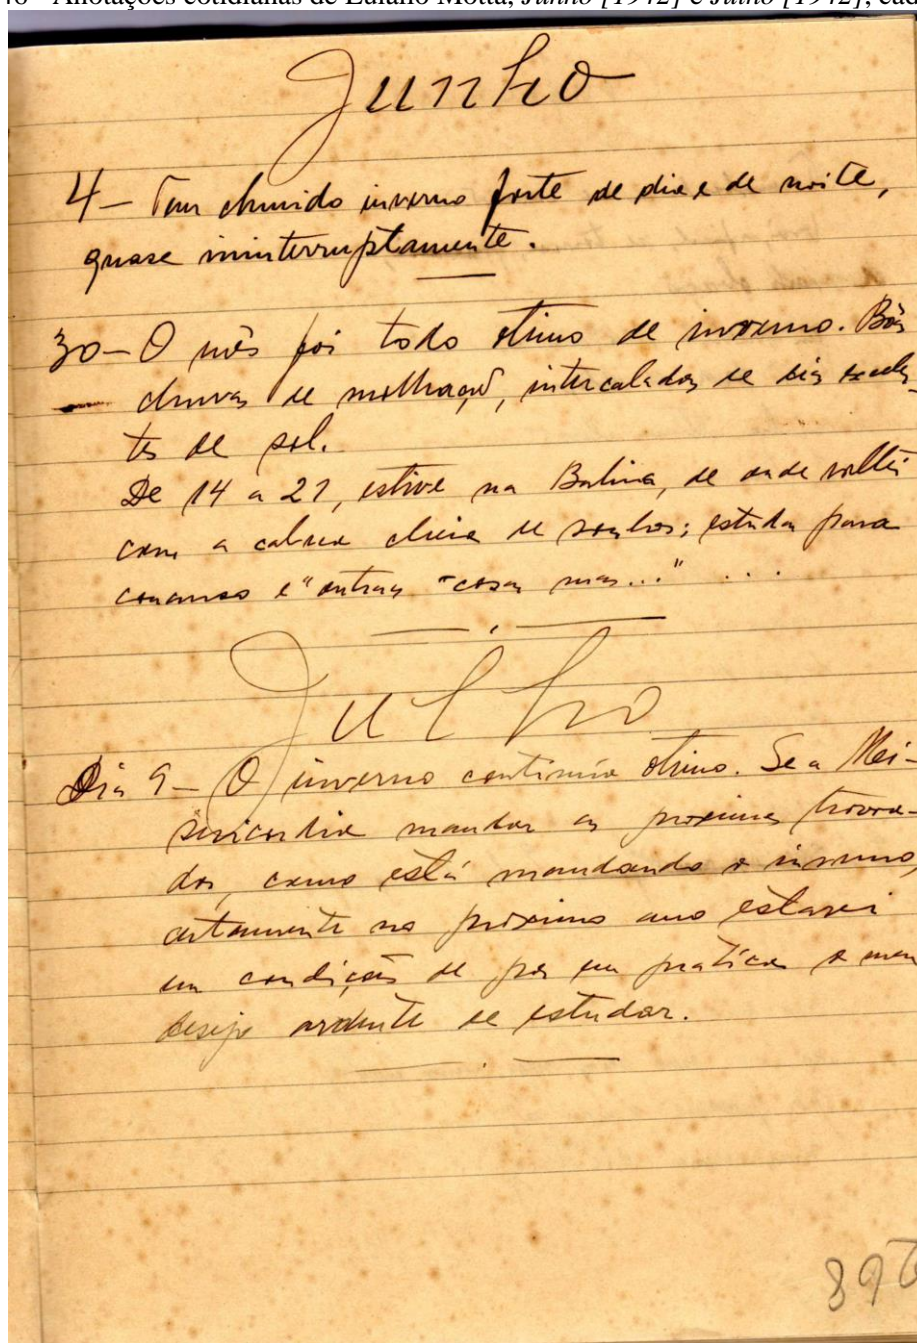 Anotações cotidianas de Eulálio Motta, Junho [1942] e Julho [1942], cad
Junho
4 – Tem chuvido inverno forte de dia e de noite,
quase ininterruptamente.
30 – O mês foi todo otimo de inverno. Bôas
chuvas de molhação, intercaladas de dias excelen-
tes de sol.
De 14 a 27, estive na Bahia, de onde voltei
com a cabeça cheia de sonhos; estudar para
concurso e "outras "cosas mas..." ...
Julho
Dia 9 – O inverno continúa otimo. Se a Mei-
sericordia mandar as proximas trovoa-
das, como está mandando o inverno,
certamente no próximo ano estarei
em condições de por em pratica o meu
desejo ardente de estudar.